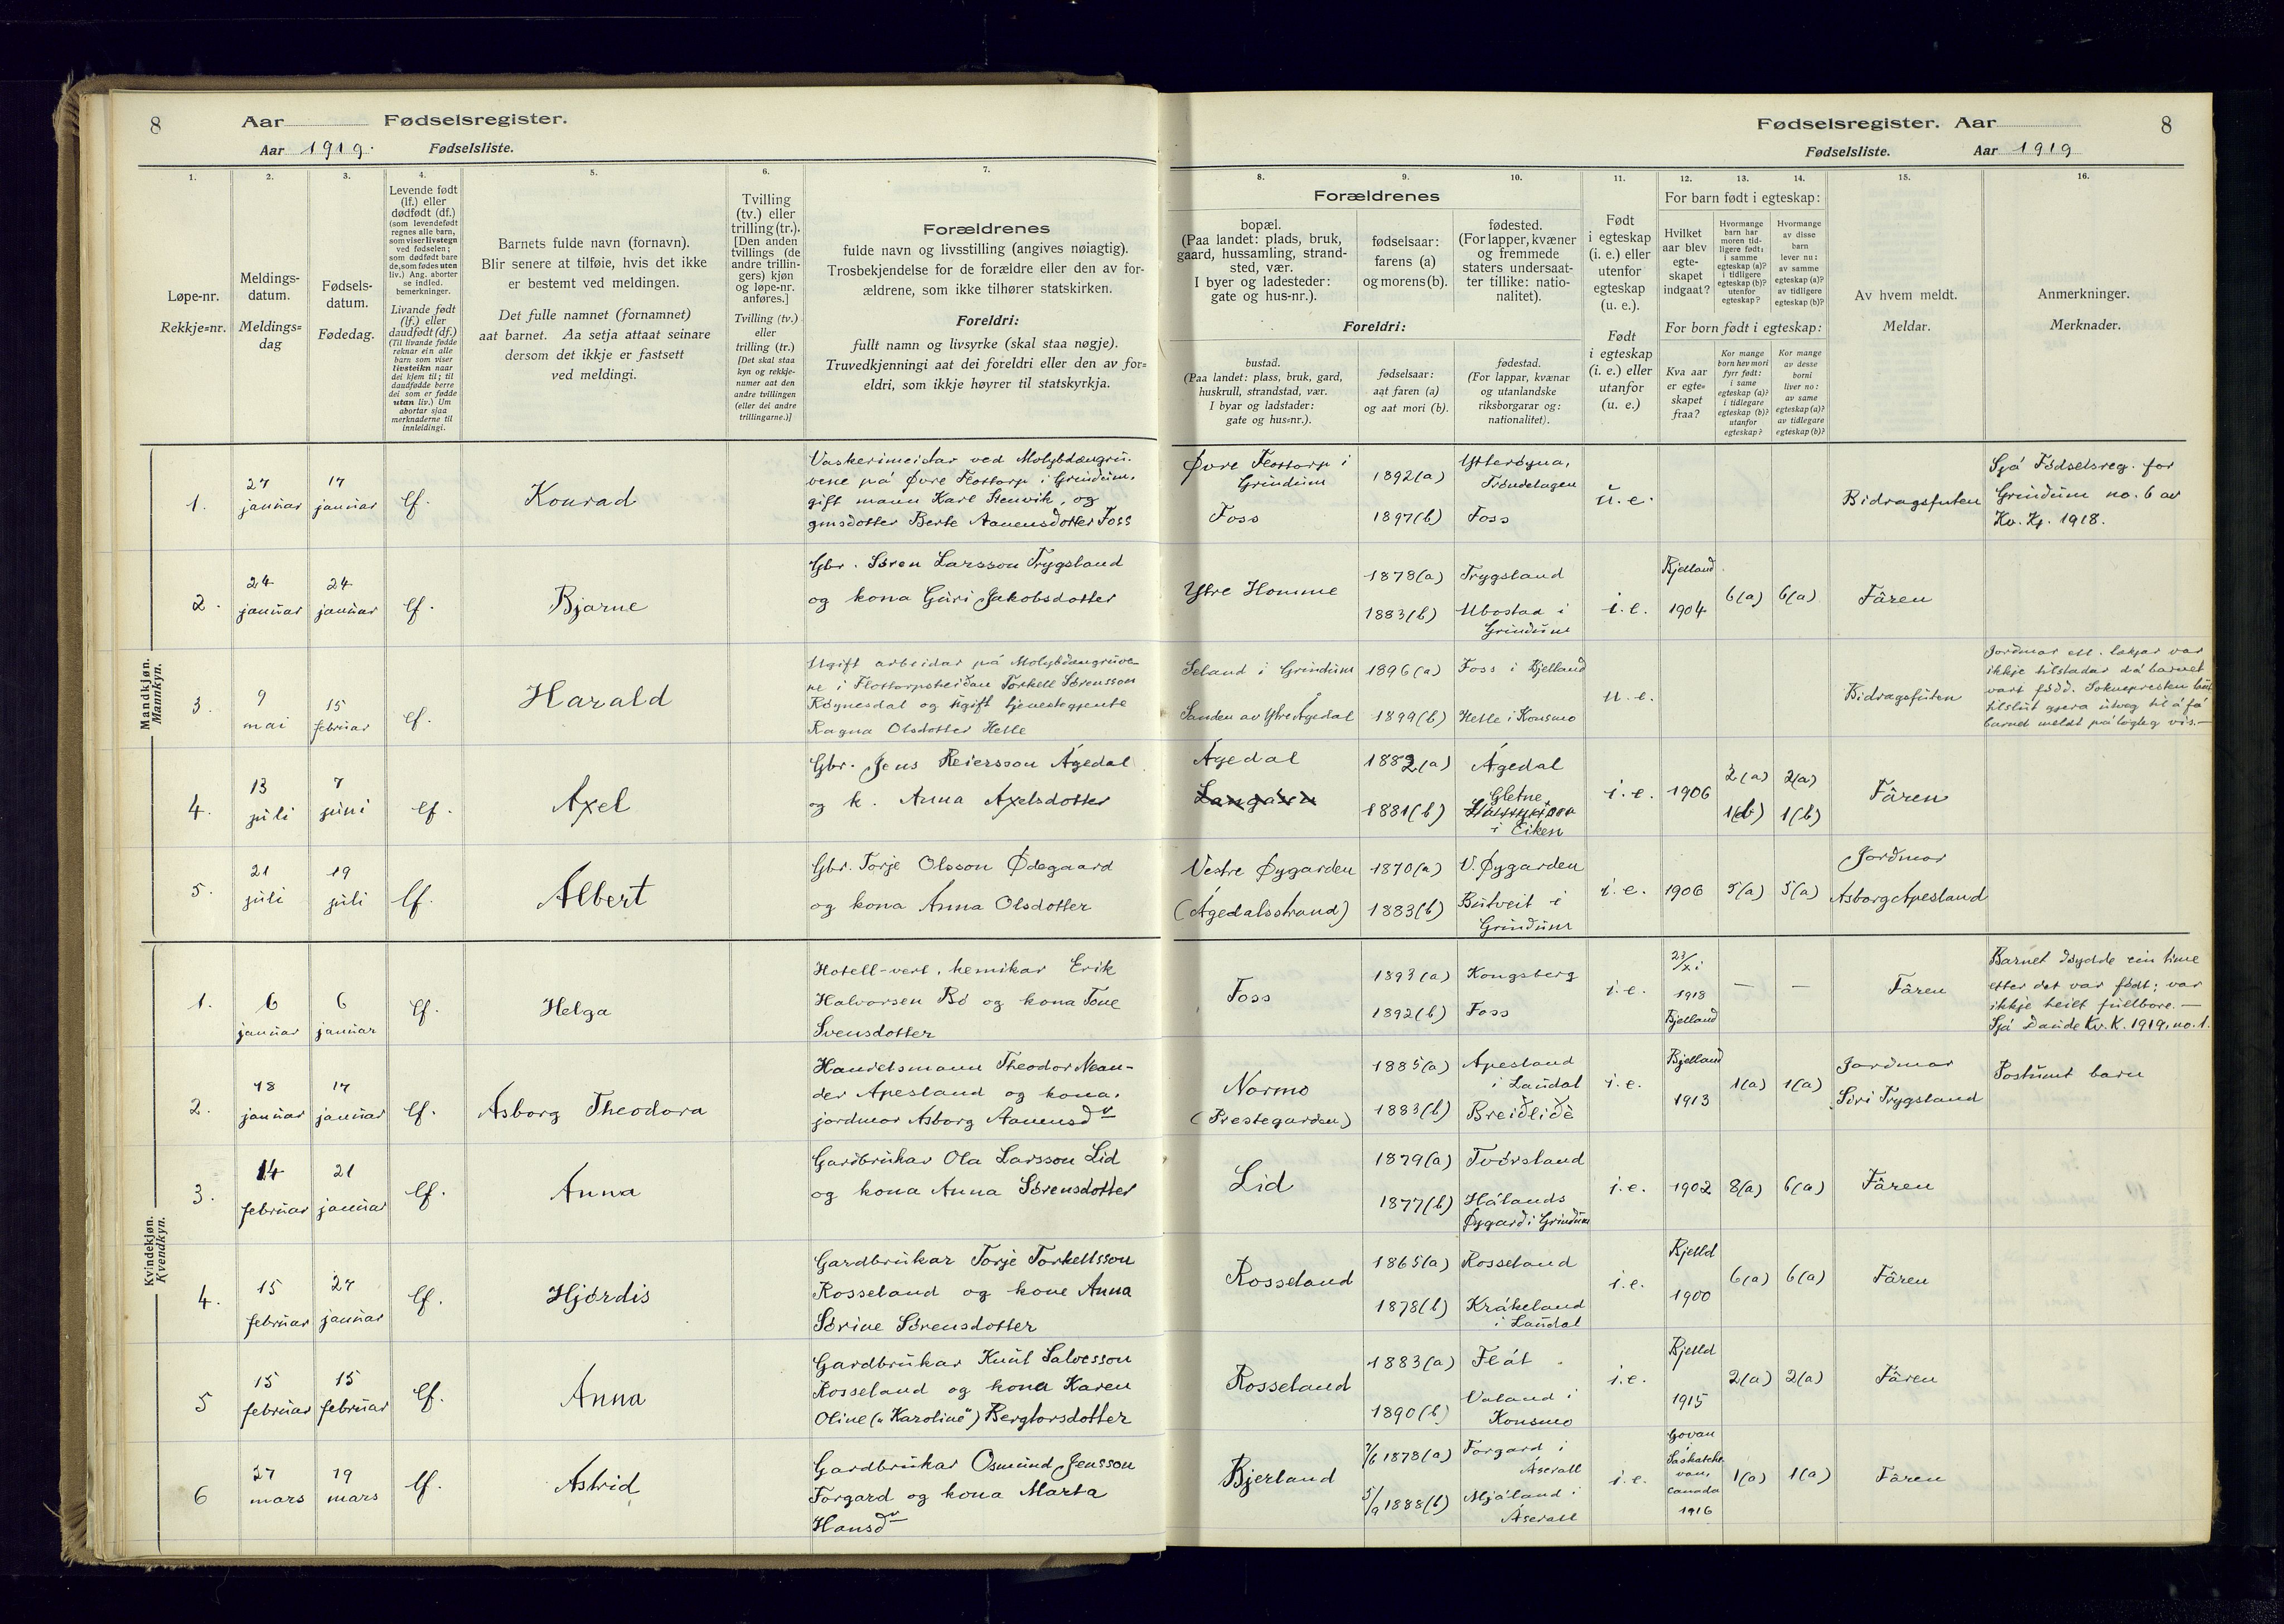 8
Aar
Fødselsregister.
Aar 1919.
Fødselsliste.
1.
2.
3.
4.
5.
6.
7.
Løpe-nr.
Rekkje=nr.
Meldings-
datum.
Meldings=
dag
Fødsels-
datum.
Fødedag.
Levende født
(lf.) eller
dødfødt (df.)
(som levendefødt
regnes alle barn,
som viser livstegn
ved fødselen;
som dødfødt bare
de, som fødes uten
liv.) Ang. aborter
se indled.
bemerkninger.
Livande født
(lf.) eller
daudfødt (df.)
(Til livande fødde
reknar ein alle
barn som viser
livsteikn naar
dei kjem til; til
daudfødde berre
dei som er fødde
utan liv.) Um
abortar sjaa
merknaderne til
innleidingi.
Barnets fulde navn (fornavn).
Blir senere at tilføie, hvis det ikke
er bestemt ved meldingen.
Det fulle namnet (fornamnet)
aat barnet. Aa setja attaat seinare
dersom det ikkje er fastsett
ved meldingi.
Tvilling
(tv.) eller
trilling (tr.).
[Den anden
tvillings (de
andre trillin-
gers) kjøn
og løpe-nr.
anføres.]
Tvilling (tv.)
eller
trilling (tr.)
[Det skal staa
kyn og rekkje-
numer aat den
andre tvillingen
(eller dei andre
trillingarne.)]
Forældrenes
fulde navn og livsstilling (angives nøiagtig).
Trosbekjendelse for de forældre eller den av for-
ældrene, som ikke tilhører statskirken.
Foreldri:
fullt namn og livsyrke (skal staa nøgje).
Truvedkjenningi aat dei foreldri eller den av for=
eldri, som ikkje høyrer til statskyrkja.
Mandkjøn.
Mannkyn.
1.
27
januar
17
januar
lf.
Konrad
Vaskerimeistar ved Molybdængru-
vene på Øvre Flottorp i Grindum,
gift mann Karl Stenvik, og
gmsdotter Berte Aanensdotter Foss
2.
24
januar
24
januar
lf.
Bjarne
Gbr. Søren Larsson Trygsland
og kona Guri Jakobsdotter
3.
9
mai
15
februar
lf.
Harald
Ugift arbeidar på Molybdængruve-
ne i Flottorpsheidan Torkell Sørensson
Røynesdal og ugift tjenestegjente
Ragna Olsdotter Helle
4.
13
juli
7
juni
lf.
Axel
Gbr. Jens Reiersson Ågedal
og k. Anna Axelsdotter
5.
21
juli
19
juli
lf.
Albert
Gbr. Torje Olsson Ødegaard
og kona Anna Olsdotter
Kvindekjøn.
Kvendkyn.
1.
6
januar
6
januar
lf.
Helga
Hotell-vert, kemikar Erik
Halvorsen Bø og kona Tone
Svensdotter
2.
18
januar
17
januar
lf.
Asborg Theodora
Handelsmann Theodor Nean-
der Apesland og kona,
jordmor Asborg Aanensdr
3.
14
februar
21
januar
lf.
Anna
Gardbrukar Ola Larsson Lid
og kona Anna Sørensdotter
4.
15
februar
27
januar
lf.
Hjördis
Gardbrukar Torje Torkellsson
Rosseland og kone Anna
Sørine Sørensdotter
5
15
februar
15
februar
lf.
Anna
Gardbrukar Knut Salvesson
Rosseland og kona Karen
Oline („Karoline") Bergtorsdotter
6
27
mars
19
mars
lf.
Astrid
Gardbrukar Osmund Jensson
Forgard og kona Marta
Hansdr
Fødselsregister. Aar
8
Fødselsliste.
Aar 1919
8.
9.
10.
11.
12.
13.
14.
15.
16.
Forældrenes
bopæl.
(Paa landet: plads, bruk,
gaard, hussamling, strand-
sted, vær.
I byer og ladesteder:
gate og hus-nr.).
fødselsaar:
farens (a)
og morens (b).
fødested.
(For lapper, kvæner
og fremmede
staters undersaat-
ter tillike: natio-
nalitet).
Foreldri:
bustad.
(Paa landet: plass, bruk, gard,
huskrull, strandstad, vær.
I byar og ladstader:
gate og hus=nr.).
fødselsaar:
aat faren (a)
og aat mori (b).
fødestad.
(For lappar, kvænar
og utanlandske
riksborgarar og:
nationalitet).
Født
i egteskap
(i. e.) eller
utenfor
egteskap
(u. e.).
Født
i egteskap
(i. e.) eller
utanfor
(u. e.)
For barn født i egteskap:
Hvilket
aar blev
egte-
skapet
indgaat?
Hvormange
barn har
moren tid-
ligere født:
i samme
egteskap (a)?
i tidligere
egteskap (b)?
utenfor
egteskap?
Hvormange
av disse
barn
lever nu:
av samme
egteskap (a)?
av tidligere
egteskap (b)?
For born født i egteskap:
Kva aar
er egte=
skapet
fraa?
Kor mange
born hev mori
fyrr født:
i same
egteskap (a)?
i tidlegare
egteskap (b)?
utanfor
egteskap?
Kor mange
av desse
borni
liver no:
av same
egteskap (a)?
av tidlegare
egteskap (b)?
Av hvem meldt.
Meldar.
Anmerkninger.
Merknader.
Øvre Flottorp i
Grindum
Foss
1892(a)
1897(b)
Ytterøyna,
Trøndelagen
Foss
u. e.
Bidragsfuten
Sjå Fødselsreg. for
Grindum no. 6 av
Kv. Kj. 1918.
Ytre Homme
1878(a)
1883(b)
Trygsland
Ubostad i
Grindum
i. e.
Bjelland
1904
6(a)
6(a)
Fåren
Seland i Grindum
Sanden av Ytre Ågedal
1896(a)
1899(b)
Foss i Bjelland
Helle i Konsmo
u. e.
Bidragsfuten
Jordmor ell. lækjar var
ikkje tilstadar då barnet
vart fødd. Soknepresten
tilslut gjera utveg til å få
barnet meldt på logleg vis.—
Ågedal
Langåsen
1882(a)
1881(b)
Ågedal
Gletne
i Eiken
i. e.
1906
2(a)
1(b)
2(a)
1(b)
Fåren
Vestre Øygarden
(Ågedalsstrand)
1870(a)
1883(b)
V. Øygarden
Butveit i
Grindum
i. e.
1906
5(a)
5(a)
Jordmor
Asborg Apesland
Foss
1893(a)
1892(b)
Kongsberg
Foss
i. e.
23/xi
1918
Bjelland
—
—
Fåren
Barnet døydde ein time
etter det var født; var
ikkje heilt fullbore.—
Sjå Daude Kv. K. 1919, no. 1.
Normo
(Prestegarden)
1885(a)
1883(b)
Apesland
i Laudal
Breidlidè
i. e.
Bjelland
1913
1(a)
1(a)
Jordmor
Siri Trygsland
Postumt barn
Lid
1879(a)
1877(b)
Tvörsland
Hålands
Øygard i Grindum
i. e.
1902
8(a)
6(a)
Fåren
Rosseland
1865(a)
1878(b)
Rosseland
Kråkeland
i Laudal
i. e.
Bjelld
1900
6(a)
6(a)
Fåren
Rosseland
1883(a)
1890(b)
Flåt
Valand i
Konsmo
i. e.
Bjelld
1915
2(a)
2(a)
Fåren
Bjerland
7/6 1878(a)
5/9 1888(b)
Forgard i
Åserall
Mjåland i
Åserall
i. e.
Govan
i
Saskatche
van,
Canada
1916
1(a)
1(a)
Fåren